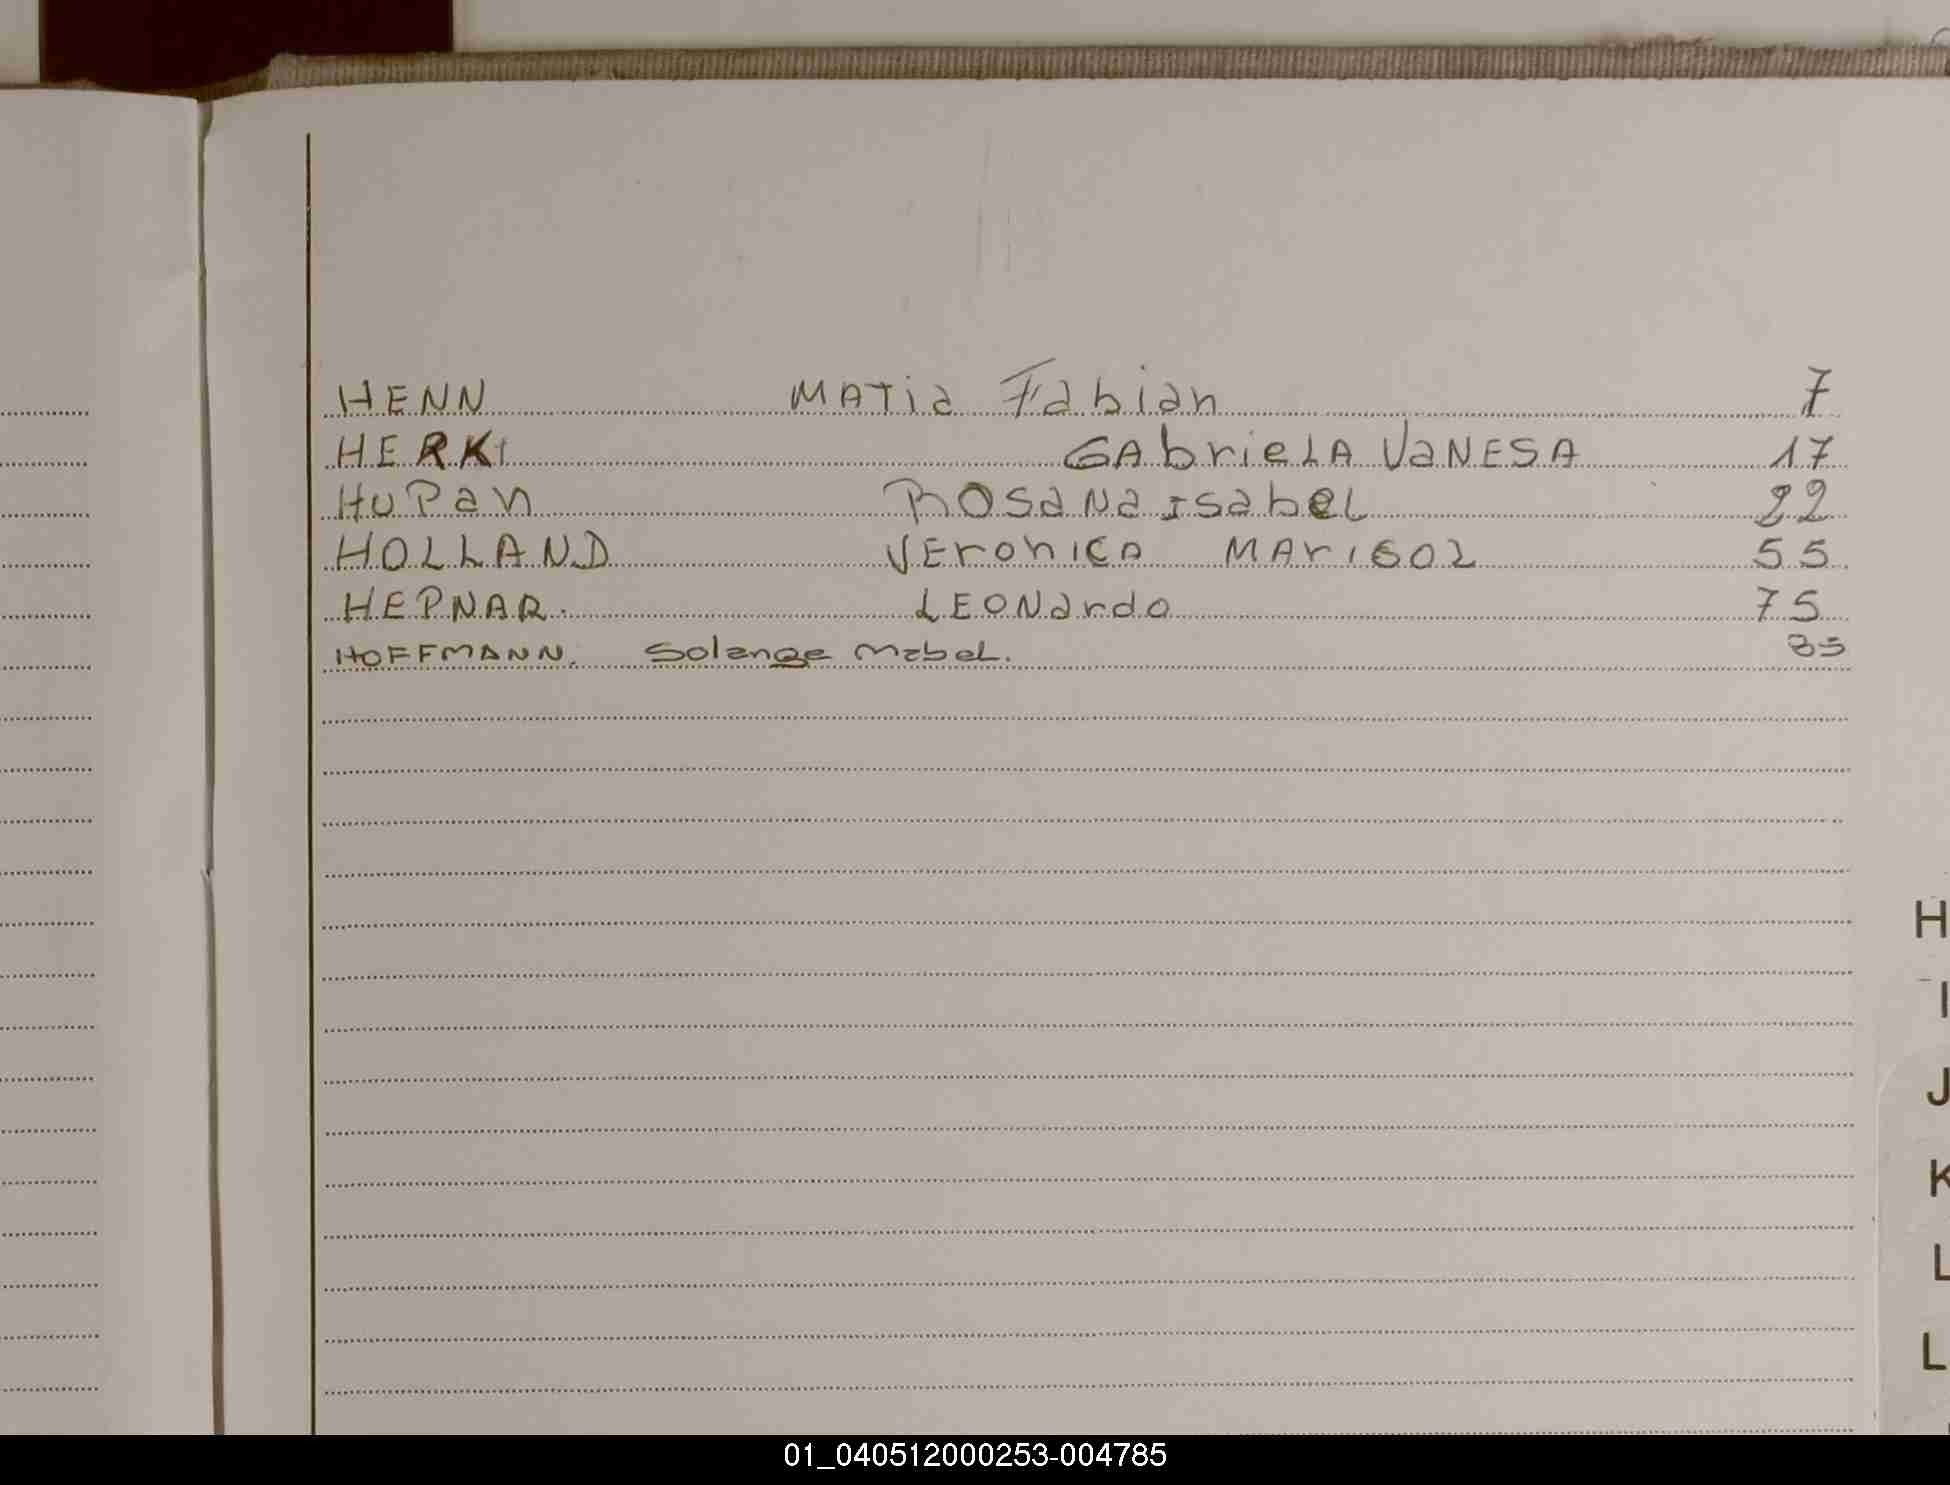 HENN MATia Fabian 7
HERKI GAbrieLA VaNESA 17
HuPan ROSaNa ISabeL 22
HOLLAND VEroNICA MArisol 55
HEPNAR. LEONardo 75
HOFFMANN. Solange Mabel. 85
H
I
J
K
L
L
01_040512000253-004785